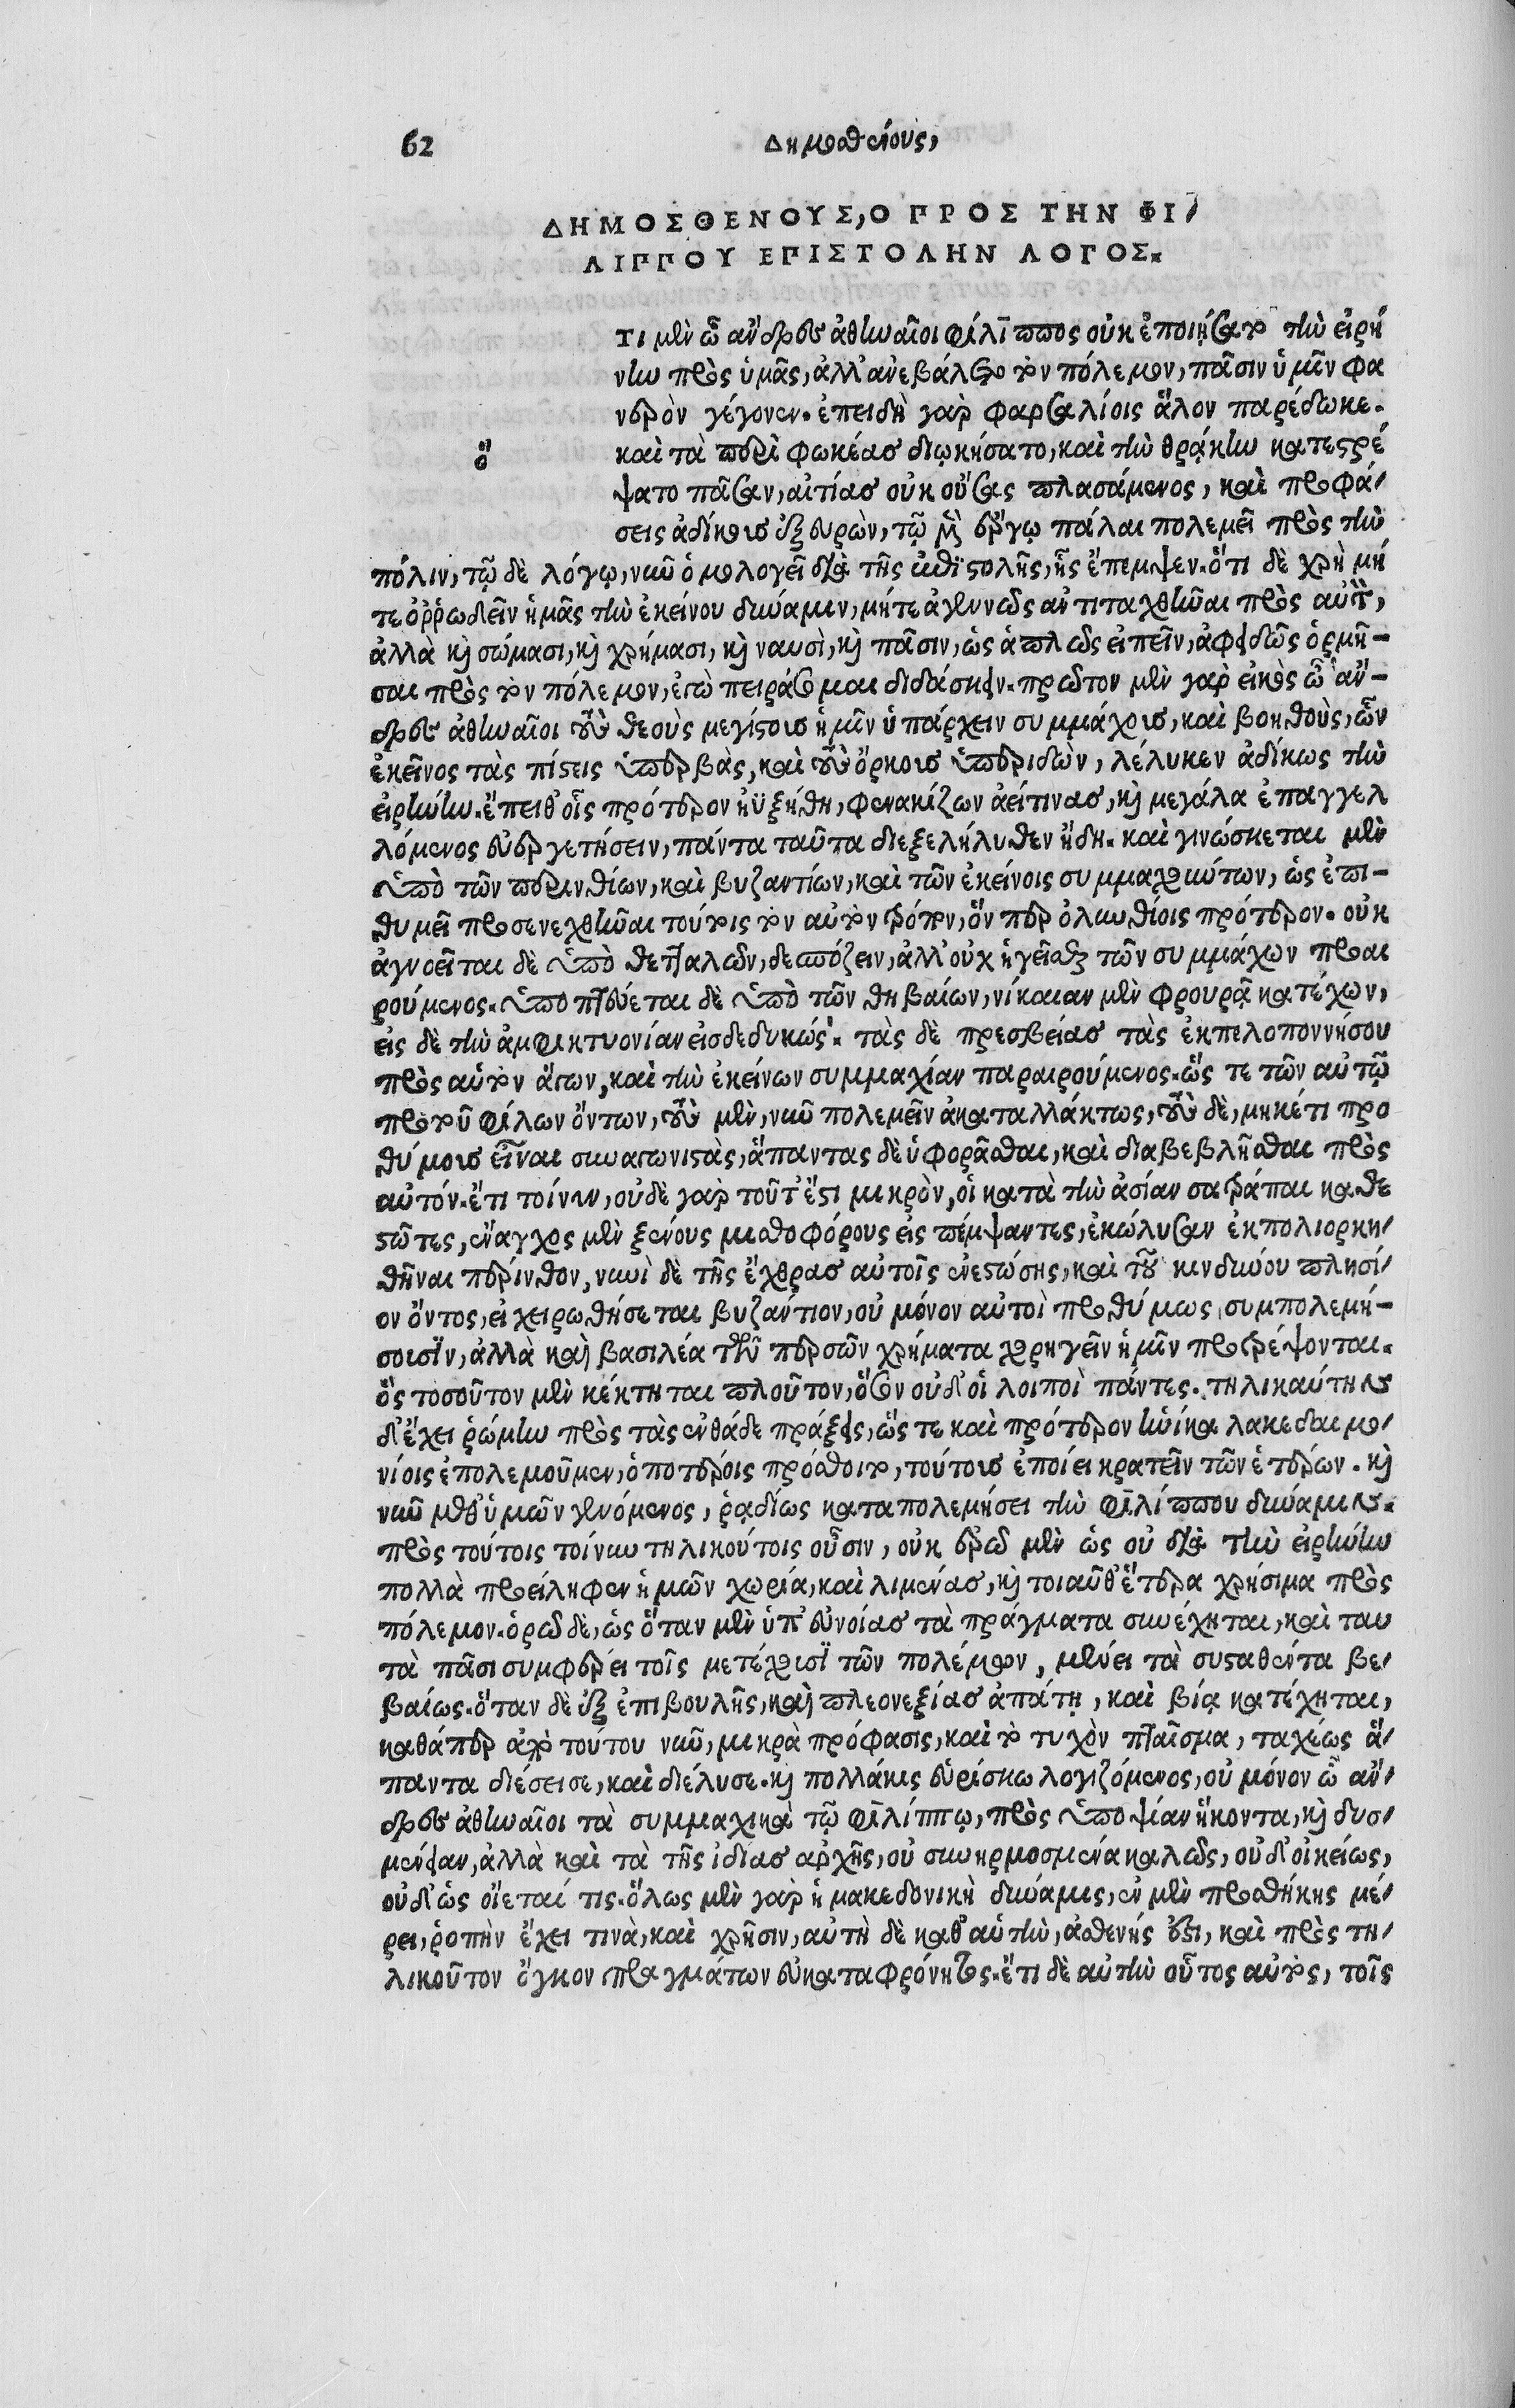 62
Δημοσθένους,
ΔΗΜΟΣΘΕΝΟΥΣ, Ο ΠΡΟΣ ΤΗΝ ΦΙ/
ΛΙΠΠΟΥ ΕΠΙΣΤΟΛΗΝ ΛΟΓΟΣ.
ΤΙ μὲν ὦ ἄνδρες ἀθηναῖοι φίλιππος οὐκ ἐποιήσατο τὴν εἰρή
νην πρὸς ὑμᾶς, ἀλλ' ἀνεβάλετο τὸν πόλεμον, πᾶσιν ὑμῖν φα
νερὸν γέγονεν. ἐπειδὴ γὰρ φαρσαλίοις ἅλον παρέδωκε.
ὅ
καὶ τὰ περὶ φωκέας διῳκήσατο, καὶ τὴν θρᾴκην κατεστρέ
ψατο πᾶσαν, αἰτίας οὐκ οὔσας πλασάμενος, καὶ προφά/
σεις ἀδίκους ἐξευρὼν, τῷ μὲν ἔργῳ πάλαι πολεμεῖ πρὸς τὴν
πόλιν, τῷ δὲ λόγῳ, νῦν ὁμολογεῖ διὰ τῆς ἐπιστολῆς, ἧς ἔπεμψεν. ὅτι δὲ χρὴ μή
τε ὀῤῥωδεῖν ἡμᾶς τὴν ἐκείνου δύναμιν, μήτε ἀγεννῶς ἀντιταχθῆναι πρὸς αὐτὸν,
ἀλλὰ καὶ σώμασι, καὶ χρήμασι, καὶ ναυσὶ, καὶ πᾶσιν, ὡς ἁπλῶς εἰπεῖν, ἀφειδῶς ὁρμῆ-
σαι πρὸς τὸν πόλεμον, ἐγὼ πειράσομαι διδάσκειν. πρῶτον μὲν γὰρ εἰκὸς ὦ ἄν-
δρες ἀθηναῖοι τοὺς θεοὺς μεγίστους ἡμῖν ὑπάρχειν συμμάχους, καὶ βοηθοὺς, ὧν
ἐκεῖνος τὰς πίστεις ὑπερβὰς, καὶ τοὺς ὅρκους ὑπεριδὼν, λέλυκεν ἀδίκως τὴν
εἰρήνην. ἔπειθ' οἷς πρότερον ηὐξήθη, φενακίζων ἀεί τινας, καὶ μεγάλα ἐπαγγελ
λόμενος εὐεργετήσειν, πάντα ταῦτα διεξελήλυθεν ἤδη. καὶ γινώσκεται μὲν
ὑπὸ τῶν περινθίων, καὶ βυζαντίων, καὶ τῶν ἐκείνοις συμμαχούντων, ὡς ἐπι-
θυμεῖ προσενεχθῆναι τούτοις τὸν αὐτὸν τρόπον, ὅν περ ὀλυνθίοις πρότερον. οὐκ
ἀγνοεῖται δὲ ὑπὸ θετταλῶν, δεσπόζειν, ἀλλ' οὐχ ἡγεῖσθαι τῶν συμμάχων προαι
ρούμενος. ὑποπτεύεται δὲ ὑπὸ τῶν θηβαίων, νίκαιαν μὲν φρουρᾷ κατέχων,
εἰς δὲ τὴν ἀμφικτυονίαν εἰσδεδυκώς. τὰς δὲ πρεσβείας τὰς ἐκ πελοποννήσου
πρὸς αὑτὸν ἄγων, καὶ τὴν ἐκείνων συμμαχίαν παραιρούμενος. ὥς τε τῶν αὐτῷ
προτοῦ φίλων ὄντων, τοὺς μὲν, νῦν πολεμεῖν ἀκαταλλάκτως, τοὺς δὲ, μηκέτι προ
θύμους εἶναι συναγωνιστὰς, ἅπαντας δὲ ὑφορᾶσθαι, καὶ διαβεβλῆσθαι πρὸς
αὐτόν. ἔτι τοίνυν, οὐδὲ γὰρ τοῦτ' ἔστι μικρὸν, οἱ κατὰ τὴν ἀσίαν σατράπαι καθε
στῶτες, ἔναγχος μὲν ξένους μισθοφόρους εἰς πέμψαντες, ἐκώλυσαν ἐκπολιορκη/
θῆναι πέρινθον, νυνὶ δὲ τῆς ἔχθρας αὐτοῖς ἐνεστώσης, καὶ τοῦ κινδύνου πλησί/
ον ὄντος, εἰ χειρωθήσεται βυζάντιον, οὐ μόνον αὐτοὶ προθύμως συμπολεμή-
σουσιν, ἀλλὰ καὶ βασιλέα τῶν περσῶν χρήματα χορηγεῖν ἡμῖν προτρέψονται.
ὃς τοσοῦτον μὲν κέκτηται πλοῦτον, ὅσον οὐδ' οἱ λοιποὶ πάντες. τηλικαύτην
δ' ἔχει ῥώμην πρὸς τὰς ἐνθάδε πράξεις, ὥς τε καὶ πρότερον ἡνίκα λακεδαιμο/
νίοις ἐπολεμοῦμεν, ὁποτέροις πρόσθοιτο, τούτους ἐποίει κρατεῖν τῶν ἑτέρων. καὶ
νῦν μεθ' ὑμῶν γενόμενος, ῥᾳδίως καταπολεμήσει τὴν φιλίππου δύναμιν.
πρὸς τούτοις τοίνυν τηλικούτοις οὖσιν, οὐκ ἐρῶ μὲν ὡς οὐ διὰ τὴν εἰρήνην
πολλὰ προείληφεν ἡμῶν χωρία, καὶ λιμένας, καὶ τοιαῦθ' ἕτερα χρήσιμα πρὸς
πόλεμον. ὁρῶ δὲ, ὡς ὅταν μὲν ὑπ' εὐνοίας τὰ πράγματα συνέχηται, καὶ ταυ
τὰ πᾶσι συμφέρει τοῖς μετέχουσι τῶν πολέμων, μένει τὰ συσταθέντα βε/
βαίως. ὅταν δὲ ἐξ ἐπιβουλῆς, καὶ πλεονεξίας ἀπάτῃ, καὶ βίᾳ κατέχηται,
καθάπερ ὑπὸ τούτου νῦν, μικρὰ πρόφασις, καὶ τὸ τυχὸν πταῖσμα, ταχέως ἅ/
παντα διέσεισε, καὶ διέλυσε. καὶ πολλάκις εὑρίσκω λογιζόμενος, οὐ μόνον ὦ ἄν/
δρες ἀθηναῖοι τὰ συμμαχικὰ τῷ φιλίππῳ, πρὸς ὑποψίαν ἥκοντα, καὶ δυσ/
μένειαν, ἀλλὰ καὶ τὰ τῆς ἰδίας ἀρχῆς, οὐ συνηρμοσμένα καλῶς, οὐδ' οἰκείως,
οὐδ' ὡς οἴεταί τις. ὅλως μὲν γὰρ ἡ μακεδονικὴ δύναμις, ἐν μὲν προσθήκης μέ/
ρει, ῥοπὴν ἔχει τινὰ, καὶ χρῆσιν, αὐτὴ δὲ καθ' αὑτὴν, ἀσθενής ἐστι, καὶ πρὸς τη/
λικοῦτον ὄγκον πραγμάτων εὐκαταφρόνητος. ἔτι δὲ αὐτὴν οὗτος αὐτὸς, τοῖς